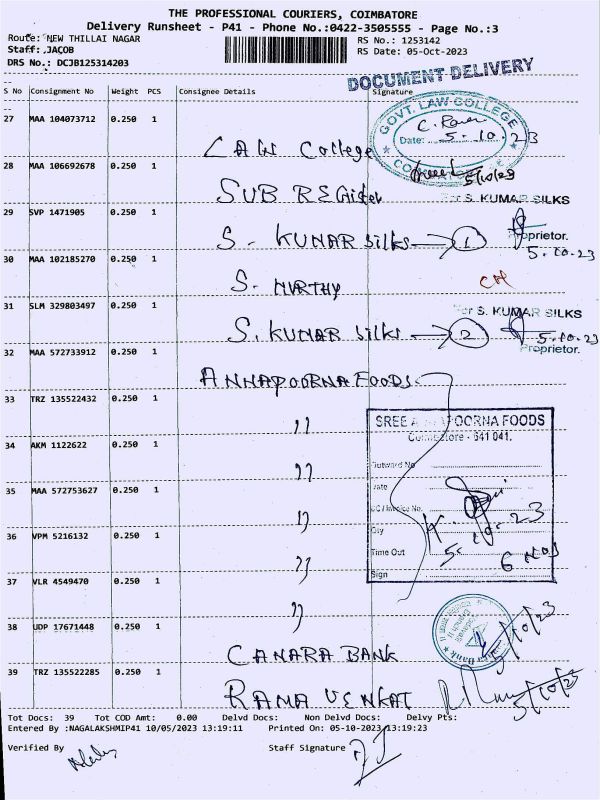 THE PROFESSIONAL COURIERS, COIMBATORE
Delivery Runsheet - P41 - Phone No.:0422-3505555 - Page No.:3
Route: NEW THILLAI NAGAR
RS No.: 1253142
Staff: JACOB
RS Date: 05-Oct-2023
DRS No.: DCJB125314203
DOCUMENT DELIVERY
S No Consignment No Weight PCS Consignee Details Signature
27 MAA 104073712 0.250 1 LAW College
GOVT. LAW COLLEGE
Date: 5.10.23
28 MAA 106692678 0.250 1 SUB
5/10/23
29 SVP 1471905 0.250 1 S. KUMAR Silks 1
S. KUMAR SILKS
Proprietor.
5.10.23
30 MAA 102185270 0.250 1 S. MURTHY
31 SLM 329803497 0.250 1 S. KUMAR Silks 2
For S. KUMAR SILKS
5.10.23
Proprietor.
32 MAA 572733912 0.250 1 ANNAPOORNA FOODS
33 TRZ 135522432 0.250 1 ,,
SREE ANNAPOORNA FOODS
Coimbatore - 641 041.
34 AKM 1122622 0.250 1 ,,
Outward No
Date
35 MAA 572753627 0.250 1 ,,
DC/Invoice No.
Qty
36 VPM 5216132 0.250 1 ,,
Time Out
6 Nos
Sign
37 VLR 4549470 0.250 1 ,,
38 UDP 17671448 0.250 1 CANARA BANK
5/10/23
39 TRZ 135522285 0.250 1 RAMA VENKAT
5/10/23
Tot Docs: 39 Tot COD Amt: 0.00 Delvd Docs: Non Delvd Docs: Delvy Pts:
Entered By :NAGALAKSHMIP41 10/05/2023 13:19:11 Printed On: 05-10-2023 13:19:23
Verified By Staff Signature